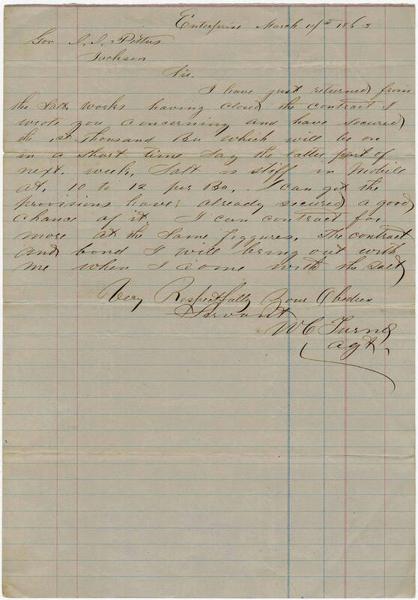 Enterprise March 1863
Gov. J. J. Pettus
Jackson
Sir.
I have just returned from
the Salt works having closed the contract I
wrote you concerning and have secured
the 1st thousand Bu which will be on
in a short time say the latter part of
next week, Salt is stiff in Mobile
at, 10 to 12 per Bu. I can get the
provisions have already secured a good
chance of it, I can contract for
more at the same figgures. The contract
and bond I will bring out with
me when I come with the Salt
Very Respectfully Your Obedien
Servant
W C Turner
agt.